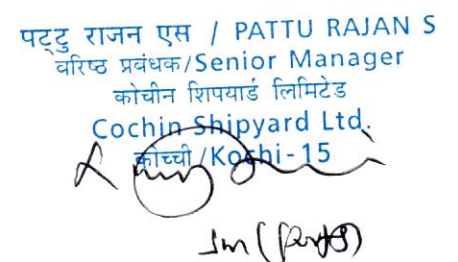 पट्टु राजन एस / PATTU RAJAN S
वरिष्ठ प्रबंधक/Senior Manager
कोचीन शिपयार्ड लिमिटेड
Cochin Shipyard Ltd.
कोच्ची/Kochi-15